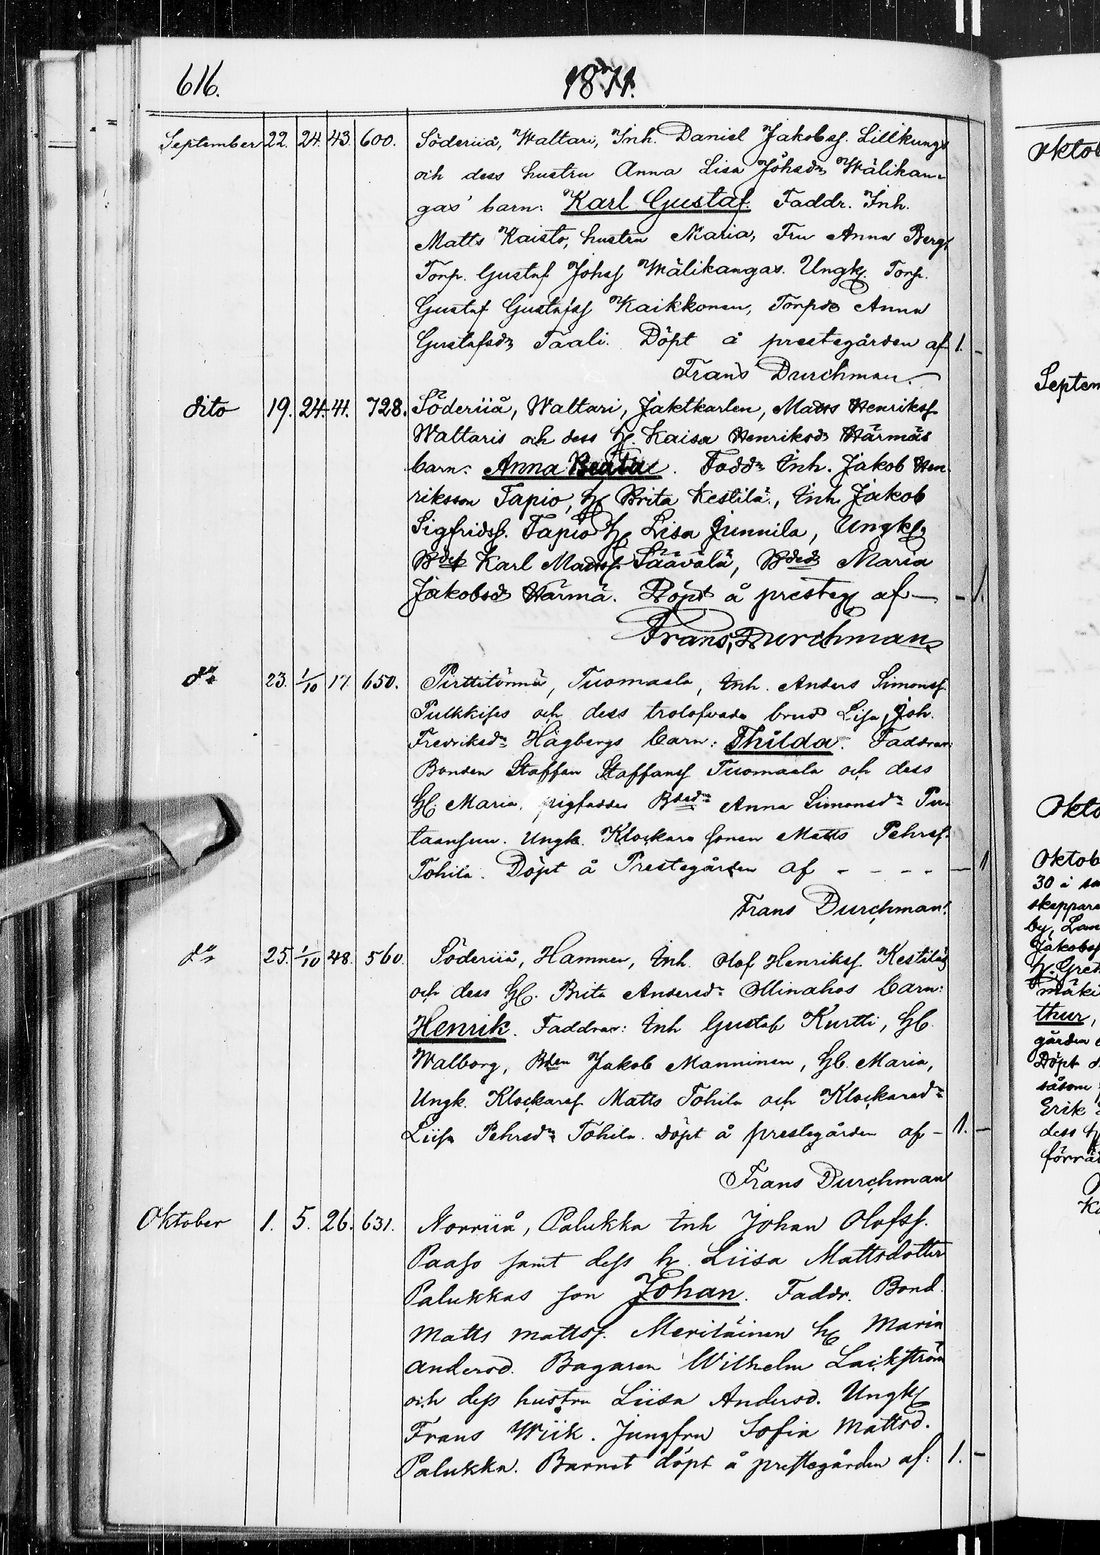 616.
1871.
September 22. 24. 43. 600. Söderiiå, Waltari, Inh. Daniel Jakobss. Lillkungs
och dess hustru Anna Lisa Johsdr Wälikan-
gas' barn: Karl Gustaf. Faddr. Inh.
Matts Kaisto, hustru Maria, Fru Anna Berg,
Torp. Gustaf Johss Wälikangas. Ungk. Torp.
Gustaf Gustafss Kaikkonen, Torpds Anna
Gustafsdr Taali. Döpt å prestegården af 1. -
Frans Durchman.
dito 19. 24. 41. 728. Söderiiå, Waltari, Jaktkarlen, Matts Henrikss.
Waltaris och dess h. Kaisa Henriksdr Härmäs
barn: Anna Beata. Faddr Inh. Jakob Hen-
riksson Tapio, h Brita Kestilä, Inh Jakob
Sigfridss. Tapio h Lisa Junnila, Ungk
Karl Matss. Säävälä, Maria
Jakobsd Härmä. Döpt å presteg af - - 1.
Frans Durchman
do 23. 1/10 17 650. Pirttitörmä, Tuomaala, Inh. Anders Simonss.
Pulkkises och dess trolofvade brud Lisa Joh.
Fredriksdr Högbergs barn: Thilda. Faddrar:
Bonden Staffan Staffanss Tuomaala och dess
H. Maria, Anna Simonsdr Pu-
taansuu. Ungk. Klockare sonen Matts Pehrss.
Tohila. Döpt å Prestegården af - - - - - 1
Frans Durchman.
do 25. 1/10 48. 560. Söderiiå, Hamnen, Inh. Olof Henrikss. Kestiläs
och dess H. Brita Andersdr Ollinahos barn:
Henrik. Faddrar: Inh Gustaf Kurtti, H.
Walborg, Bden Jakob Manninen, H. Maria,
Ungk. Klockarss Matts Tohila och Klockaredr
Liisa Pehrsdr Tohila. Döpt å prestegården af - 1. -
Frans Durchman
Oktober 1. 5. 26. 631. Norriiå, Palukka Inh Johan Olofss.
Paaso samt dess h. Liisa Mattsdotter
Palukkas son Johan. Faddr. Bond.
Matts Mattss. Meriläinen h Maria
Andersd. Bagaren Wilhelm Lackström
och dess hustru Liisa Andersd. Ungk
Frans Wiik. Jungfru Sofia Mattsd.
Palukka. Barnet döpt å prestegården af: 1. -
Oktob
Septem
Okto
Oktob
30 i
skeppare
by,
Jakobss
h. Gret
mäki
thur,
gården
Döpt
såsom
Erik
dess h